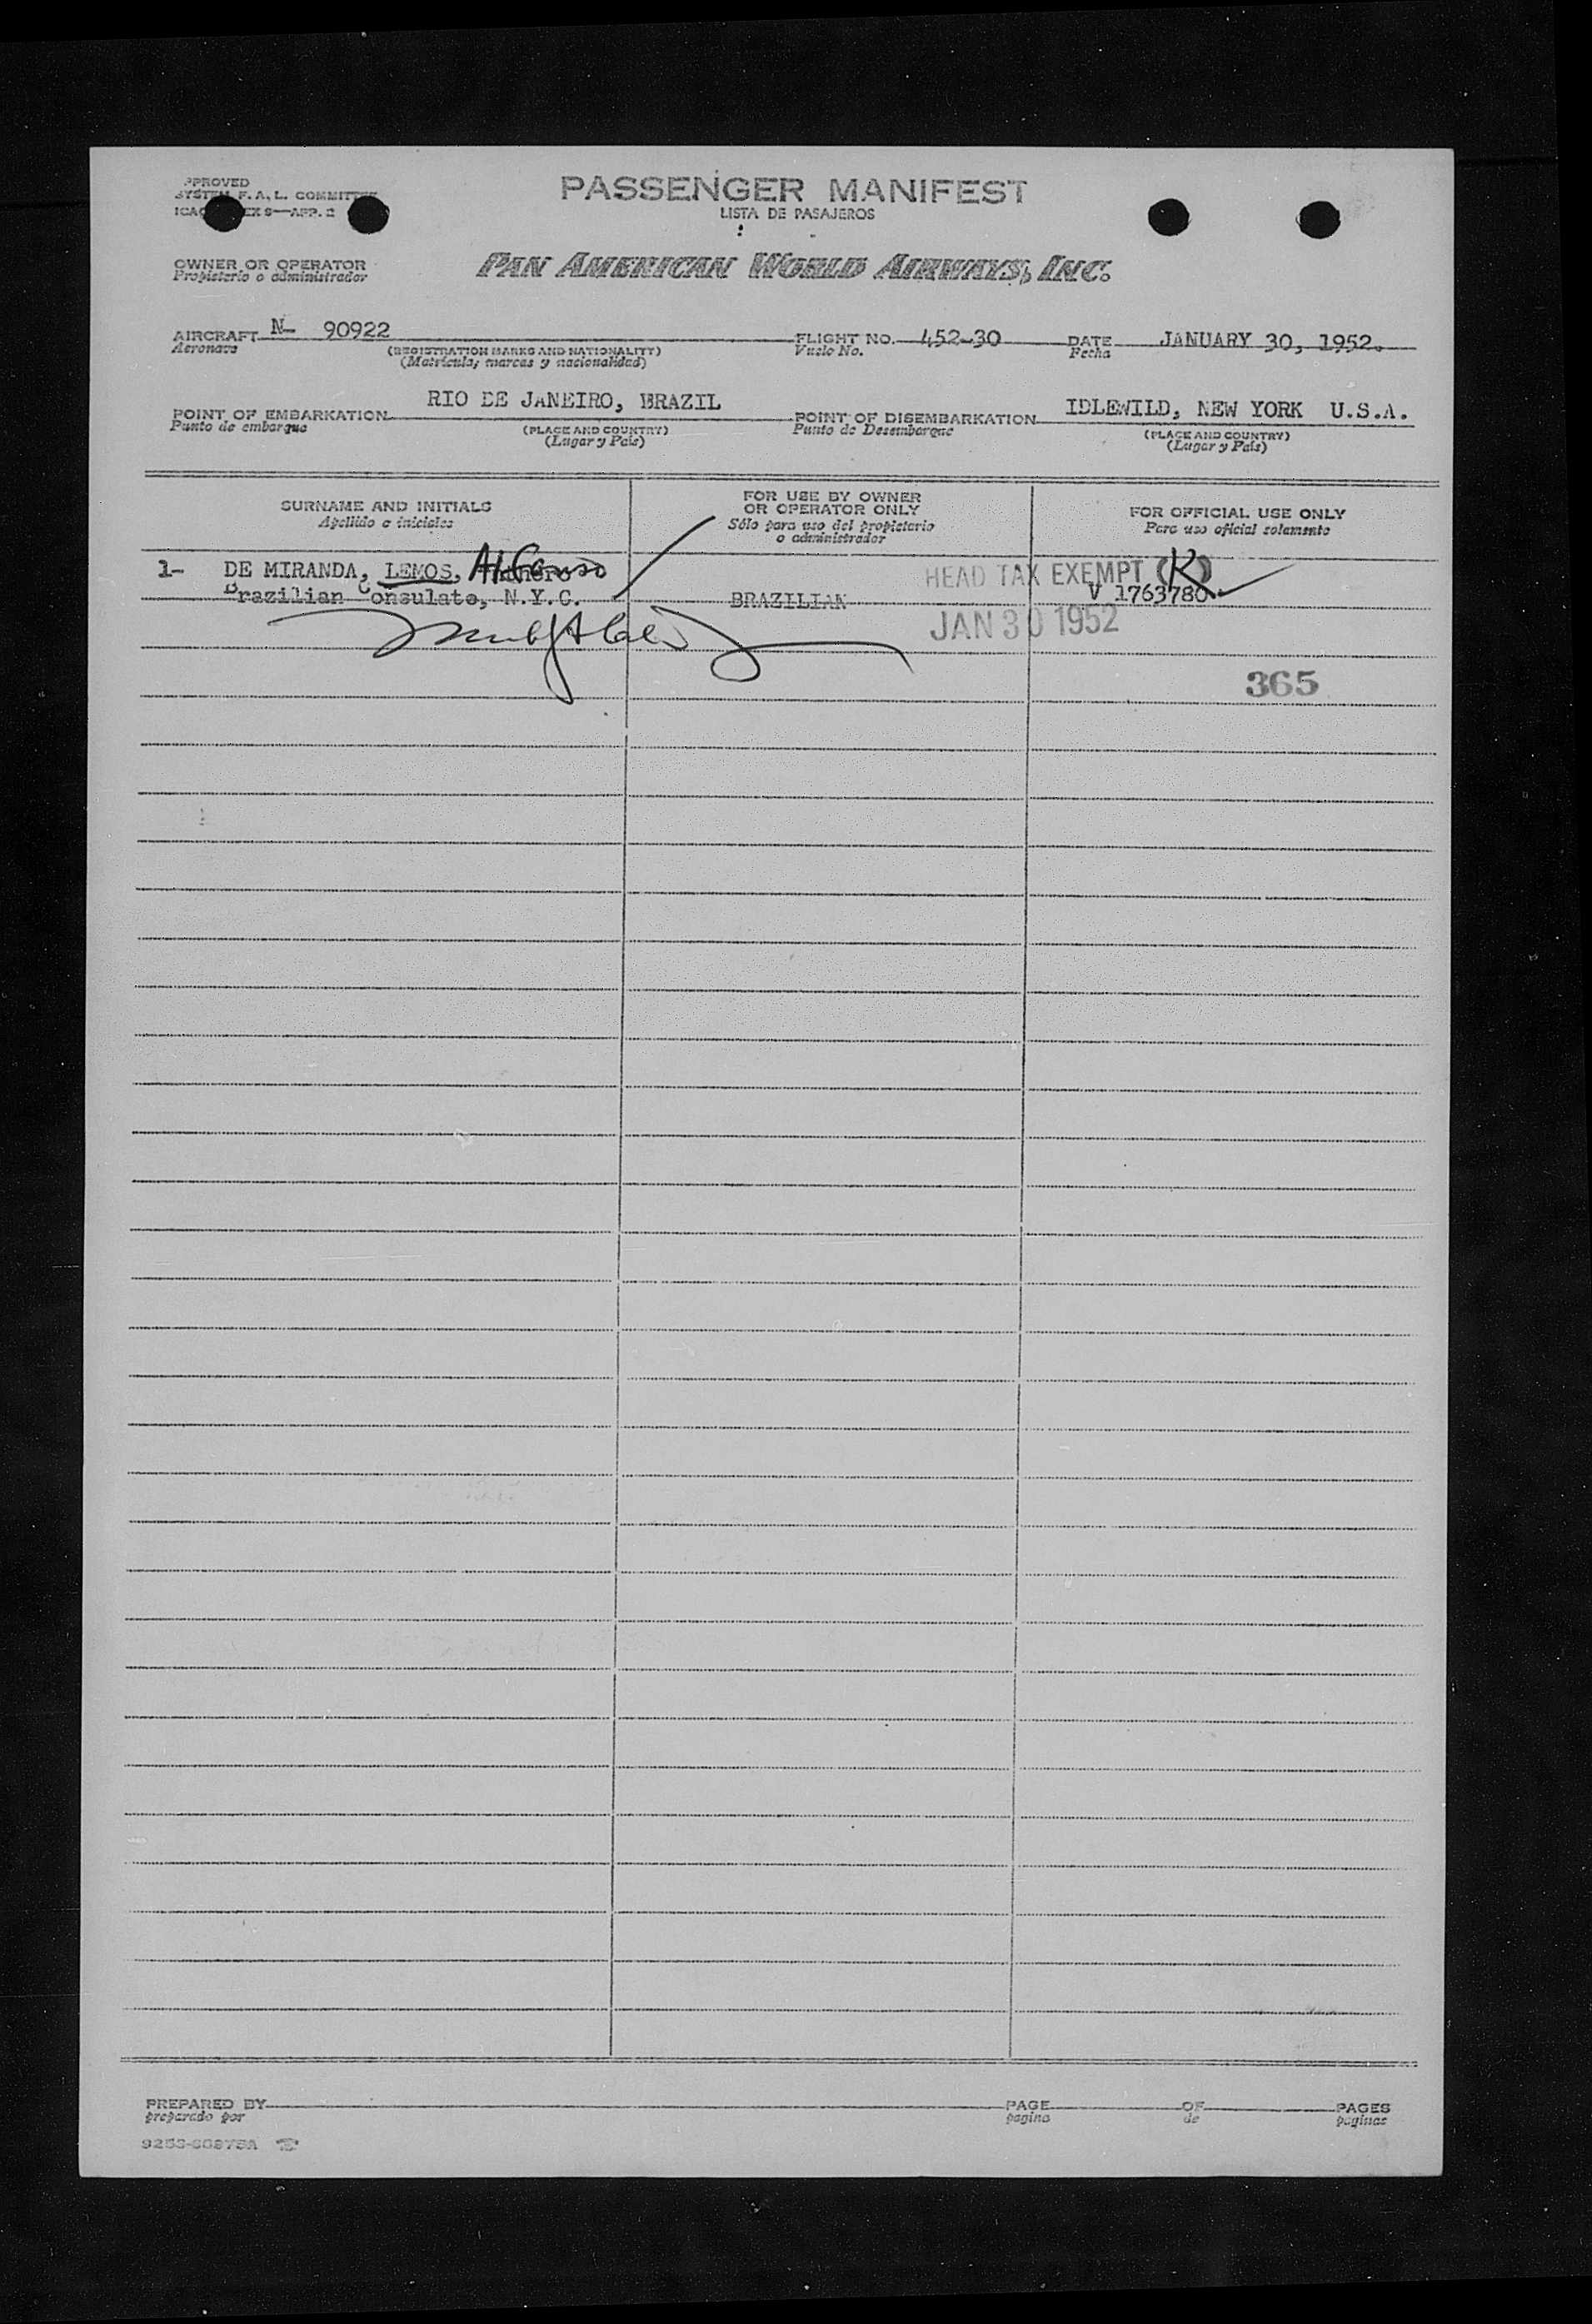 PPROVED
SYSTEM F. A. L. COMMITTEE
ICAO EX 9—APP. 2
PASSENGER MANIFEST
LISTA DE PASAJEROS
OWNER OR OPERATOR
Propietario o administrador
PAN AMERICAN WORLD AIRWAYS, INC.
AIRCRAFT N- 90922 FLIGHT NO. 452-30 DATE JANUARY 30, 1952.
Aeronave (REGISTRATION MARKS AND NATIONALITY) Vuelo No. Fecha
(Matrícula; marcas y nacionalidad)
POINT OF EMBARKATION RIO DE JANEIRO, BRAZIL POINT OF DISEMBARKATION IDLEWILD, NEW YORK U.S.A.
Punto de embarque (PLACE AND COUNTRY) Punto de Desembarque (PLACE AND COUNTRY)
(Lugar y País) (Lugar y País)
SURNAME AND INITIALS FOR USE BY OWNER OR OPERATOR ONLY FOR OFFICIAL USE ONLY
Apellido e iniciales Sólo para uso del propietario o administrador Para uso oficial solamente
1- DE MIRANDA, LEMOS, HEAD TAX EXEMPT (K)
Brazilian Consulate, N.Y.C. BRAZILIAN V 1763780
JAN 30 1952
365
PREPARED BY PAGE OF PAGES
preparado por pagina de paginas